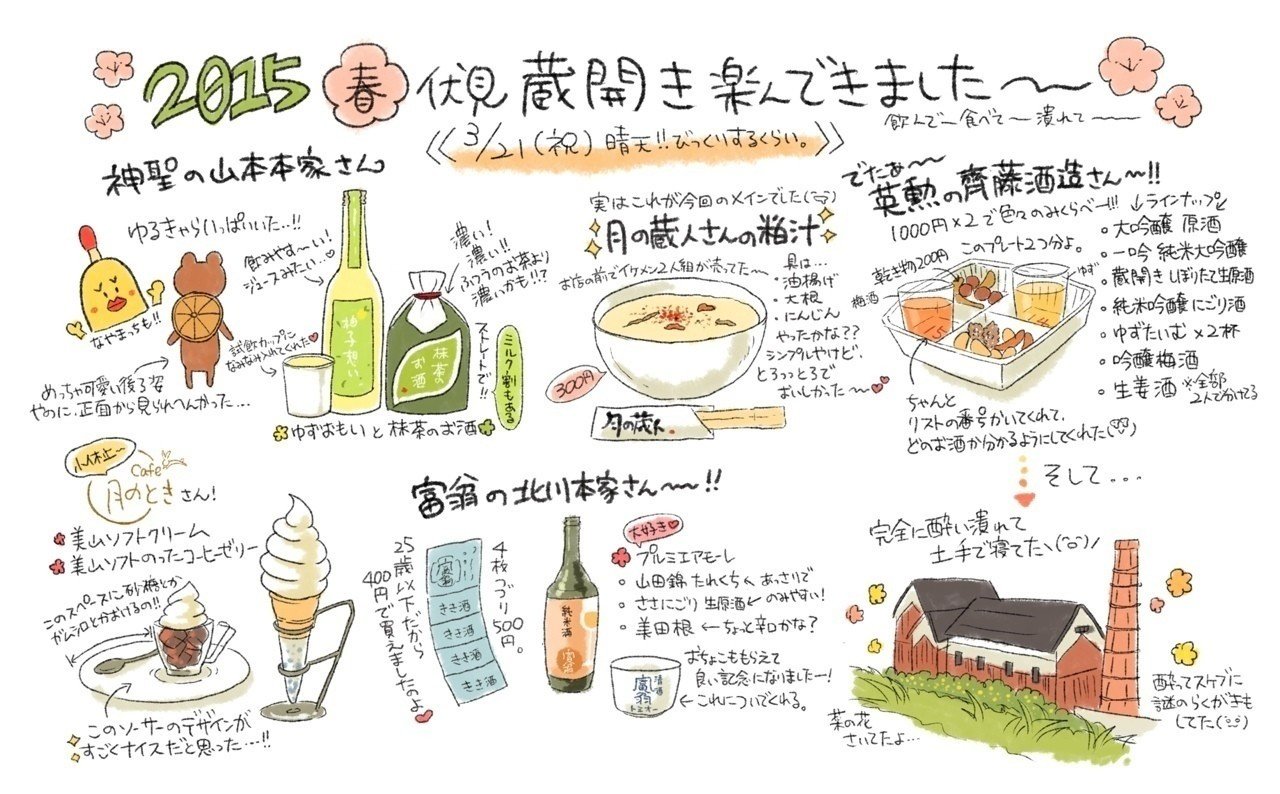 2015 春 伏見 蔵開き 楽んできました〜
飲んでー食べてー潰れてー
《3/21(祝) 晴天!!びっくりするくらい。》
神聖の山本本家さん
ゆるきゃらいっぱいいた..!!
なやまっちも!!
めっちゃ可愛い後ろ姿
やのに、正面から見られへんかった...
飲みやす〜い!
ジュースみたい..
試飲カップに
なみなみ入れてくれた
柚子想い
濃い!
濃い!!
ふつうのお茶より
濃いかも!!?
抹茶の
お酒
ストレートで!!
ミルク割もある
ゆずおもい と 抹茶のお酒
実はこれが今回のメインでした
月の蔵人さんの粕汁
お店の前でイケメン2人組が売ってた〜
具は...
・油揚げ
・大根
・にんじん
やったかな??
シンプルやけど、
とろっっとろで
おいしかった〜
300円
月の蔵人
でたぁ〜〜
英勲の齊藤酒造さん〜!!
1000円×2で色々のみくらべー!!!
このプレート2つ分よ。
乾き物200円
梅酒
ゆず
↓ラインナップ↓
・大吟醸 原酒
・一吟 純米大吟醸
・蔵開き しぼりたて生原酒
・純米吟醸にごり酒
・ゆずたいむ×2杯
・吟醸梅酒
・生姜酒
※全部
2人で分けてる
ちゃんと
リストの番号かいてくれて、
どのお酒か分かるようにしてくれた
そして...
小休止〜
Cafe
月のとき さん!
美山ソフトクリーム
美山ソフトのったコーヒーゼリー
このスペースに砂糖とか
ガムシロとかおけるの!!
このソーサーのデザインが
すごくナイスだと思った...!!
富翁の北川本家さん〜〜!!
4枚つづり500円。
25歳以下だから
400円で買えましたのよ
富翁
きき酒
きき酒
きき酒
きき酒
純米酒
富翁
大好き
プルミエアモーレ
・山田錦 たれくち ← あっさりで
・ささにごり 生原酒 ← のみやすい!
・美田根 ← ちょっと辛口かな?
おちょこももらえて
良い記念になりましたー!
←これについでくれる。
清酒
富翁
トミオー
完全に酔い潰れて
土手で寝てた
菜の花
さいてたよ...
酔ってスケブに
謎のらくがきも
してた